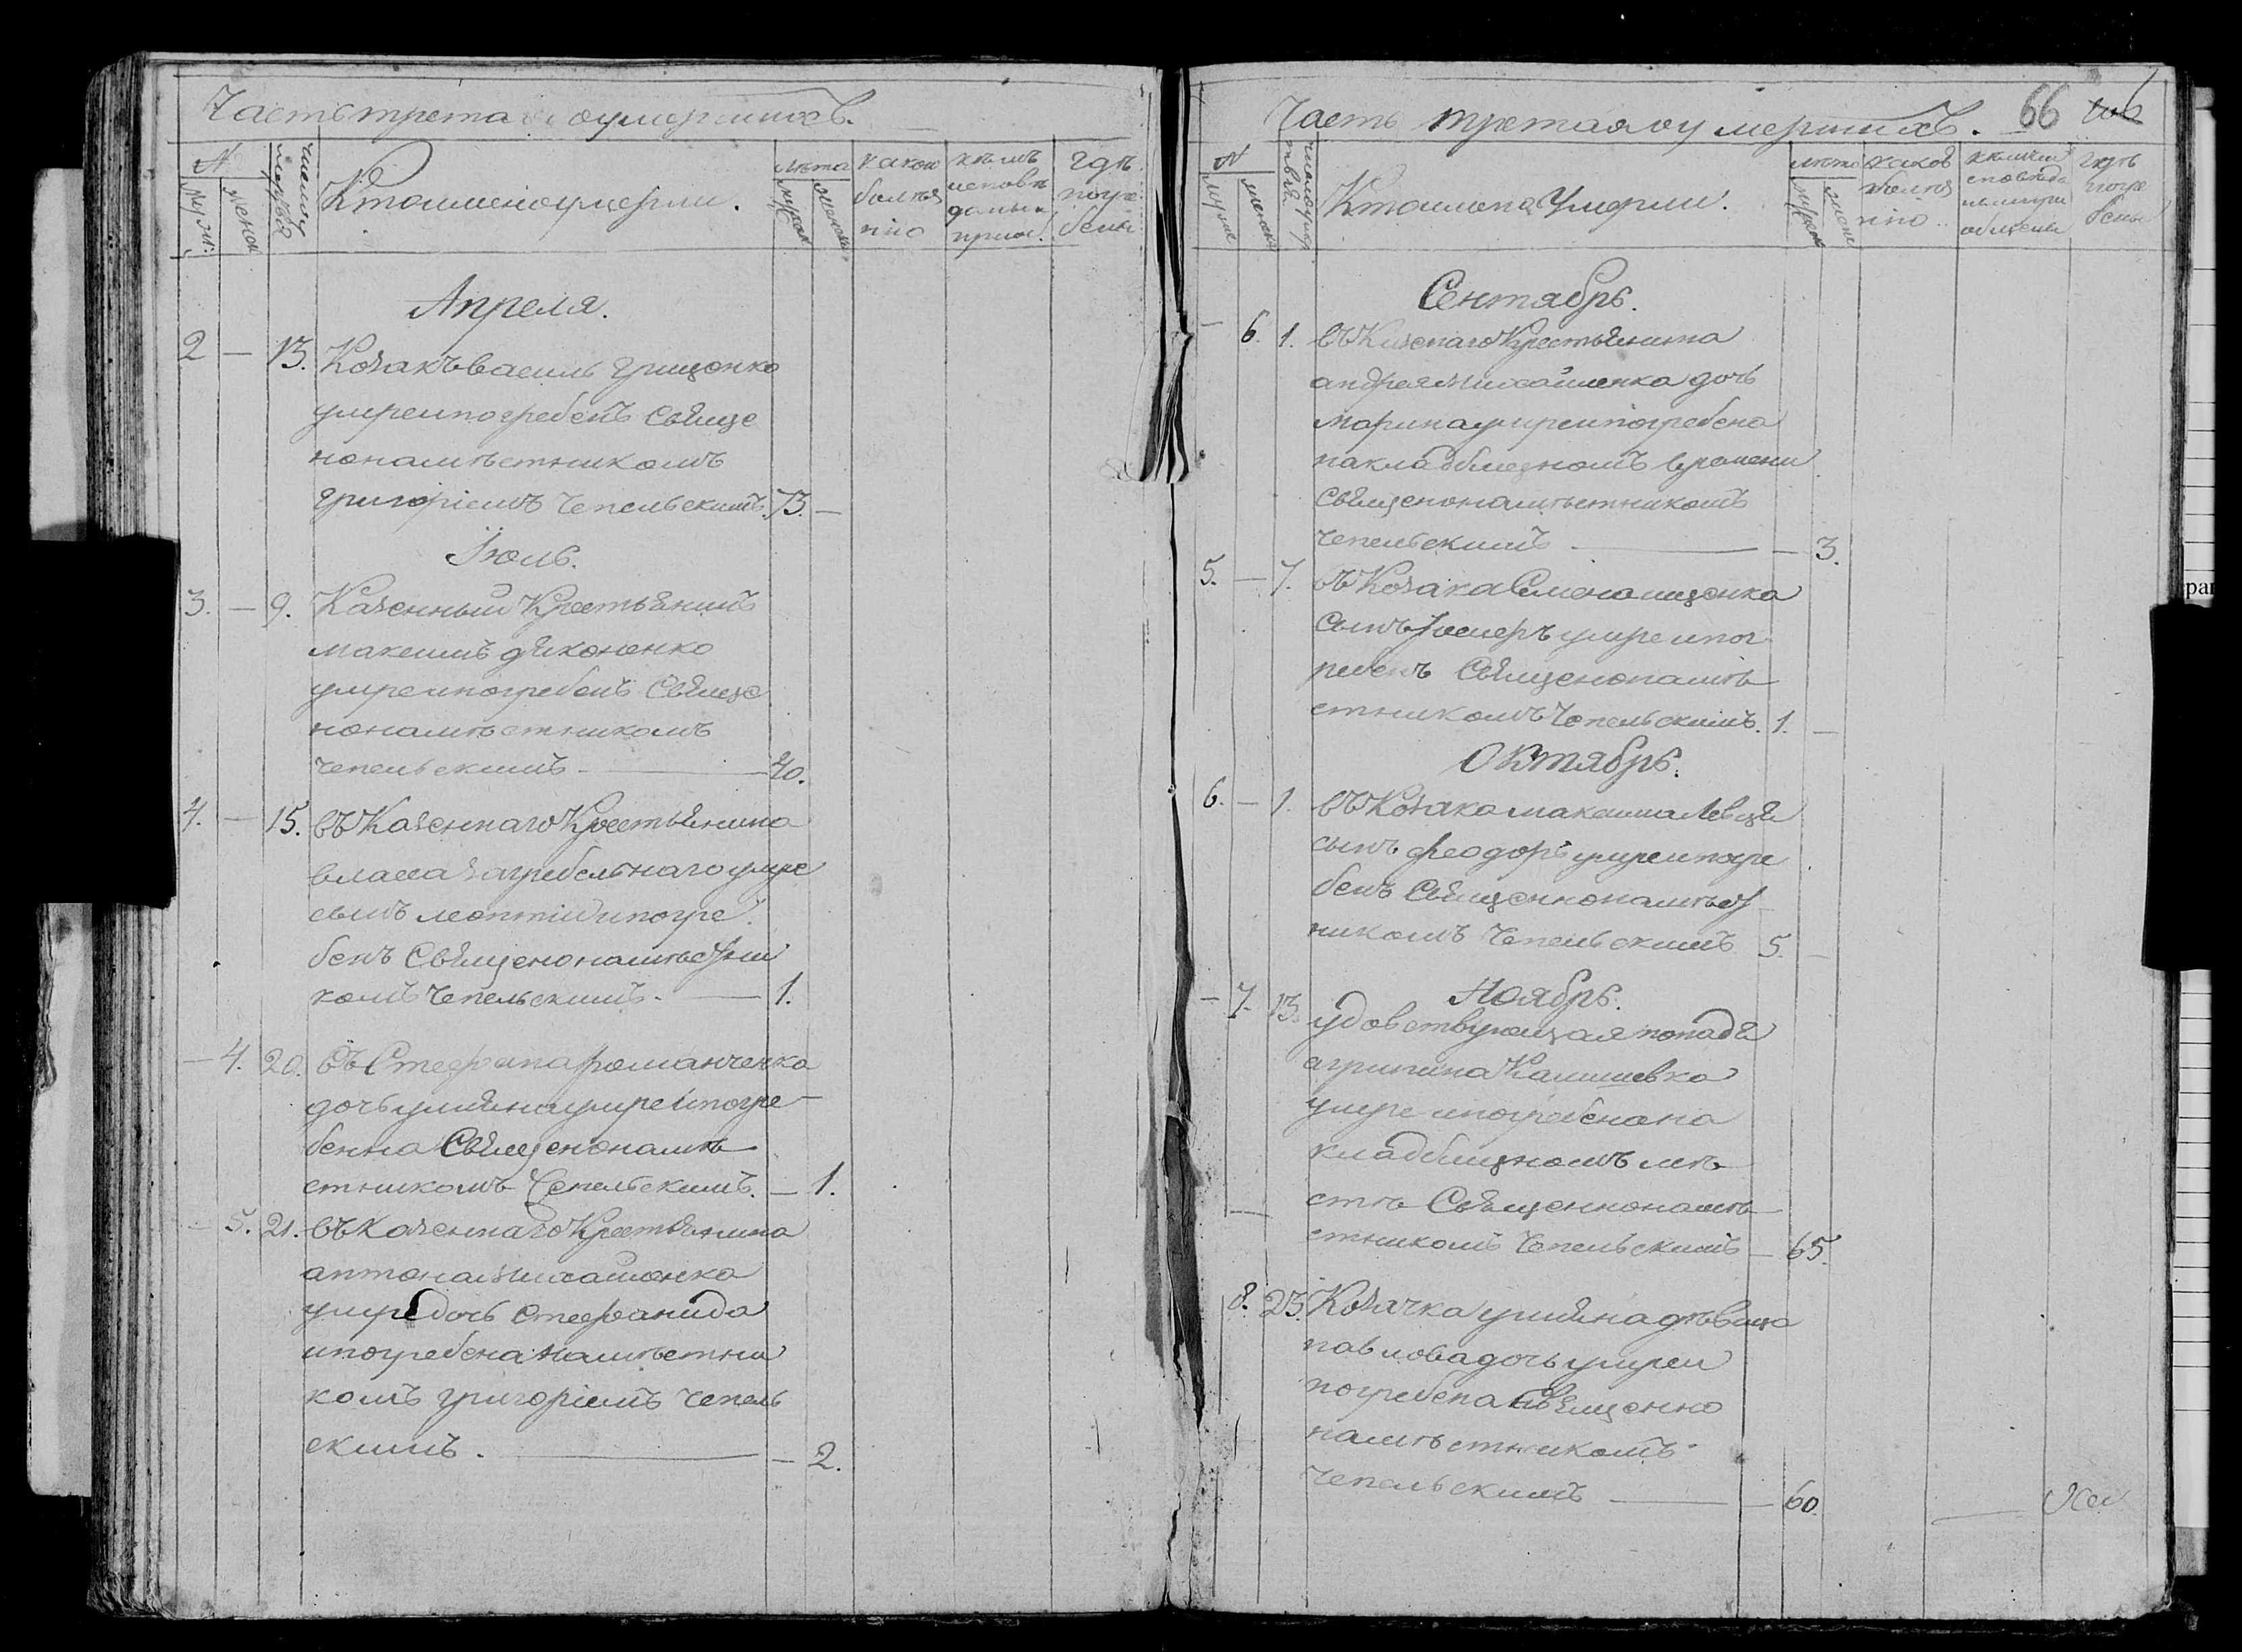 Часть третая о умершихъ.
№
муж:
женск
число умертвія
Кто именно умерли.
лета
мужск
женск
какою
болез
нію
кемъ
исповѣ
даны и
приоб.
гдѣ
погре
бены
Апреля.
2 — 13. Козакъ василь грищенко
умре и погребенъ Свяще
нонамѣстникомъ
григоріемъ Чепельскимъ. 73. —
Іюль.
3. — 9. Казенный Крестьянинъ
максимъ дяконенко
умре и погребенъ Свяще
нонамѣстникомъ
Чепельскимъ — 40.
4. — 15. въ Казеннаго Крестьянина
власа загребельнаго умре
сынъ леонтій и погре
бенъ Священонамѣстни
комъ Чепельскимъ. — 1.
— 4. 20. въ Стефана романченка
дочь улияна умре и погре
бенна Священонамѣ
стникомъ Чепельскимъ. — 1.
— 5. 21. въ Казеннаго Крестьянина
антона Михайленка
умре дочь Стефанида
и погребена Намѣстни
комъ григоріемъ Чепель
скимъ. — 2.
Часть третая о умершихъ. 66
№
мужск
женск
Кто имено Умерли.
лета
мужск
женск
какою
болез
нію
гдѣ
погре
бены
Сентябрь.
— 6. 1. въ Казенаго Крестьянина
андрея Михайленка дочь
марина умре и погребена
на кладбищномъ
Священонамѣстникомъ
Чепельскимъ — 3.
5. — 7. въ Козака Семена ищенка
Сынъ умре и пог
ребенъ Священонамѣ
стникомъ Чепельскимъ. 1. —
Октябрь.
6. — 1. въ Козака максима
сынъ феодоръ умре и погре
бенъ Священнонамѣст
никомъ Чепельскимъ 5. —
Ноябрь.
— 7. 13. удовствующая попадя
агрипина
умре и погребена на
кладбищномъ мѣ
стѣ Священнонамѣ
стникомъ Чепельскимъ — 65.
8. 23. Козачка улияна дѣвица
павлова дочь умре и
погребена Священно
намѣстникомъ
Чепельскимъ — 60.